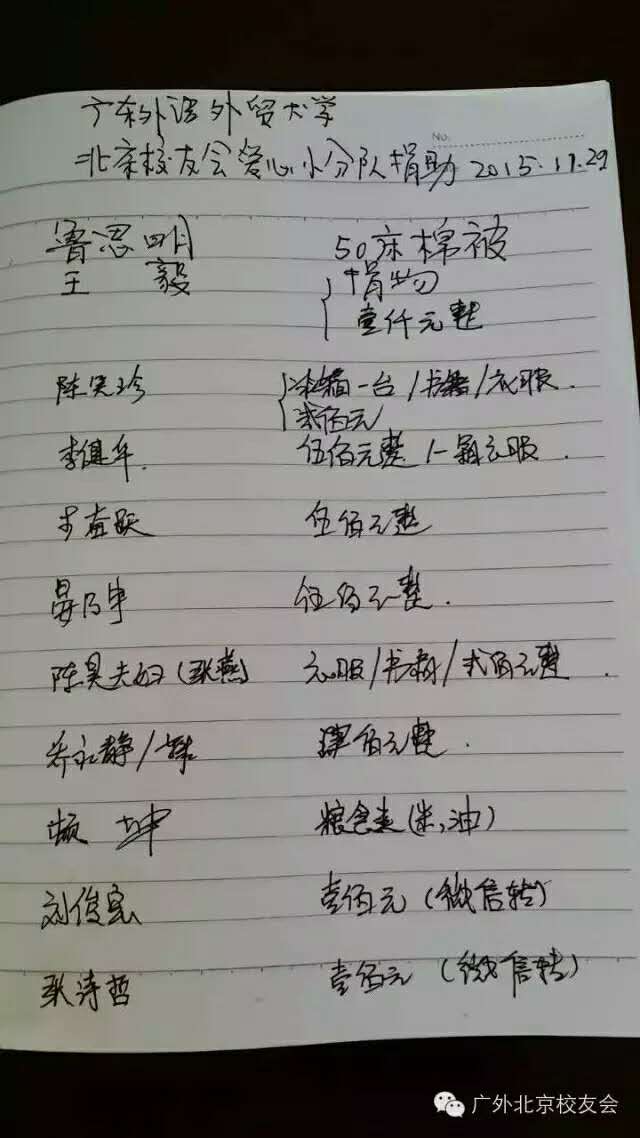 广东外语外贸大学
No.
北京校友会爱心小分队捐助 2015.11.29
思明 50床棉被
王 毅 捐物
壹仟元整
陈笑珍 冰箱一台/书籍/衣服.
贰佰元
李健年. 伍佰元整/一箱衣服.
李益跃 伍佰元整
晏乃申 伍佰元整.
陈昊夫妇(张燕) 衣服/书籍/贰佰元整.
乔永静/ 肆佰元整.
坤 粮食类(米,油)
刘俊宏 壹佰元(微信转)
张诗哲 壹佰元(微信转)
广外北京校友会